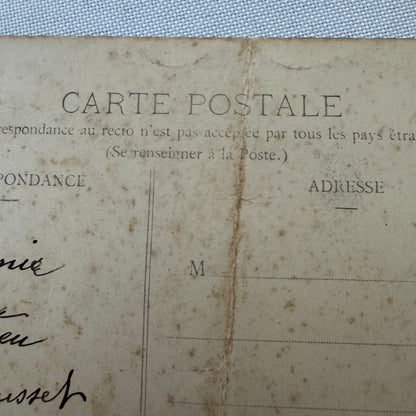 CARTE POSTALE
respondance au recto n'est pas acceptée par tous les pays étra
(Se renseigner à la Poste.)
PONDANCE
ADRESSE
M